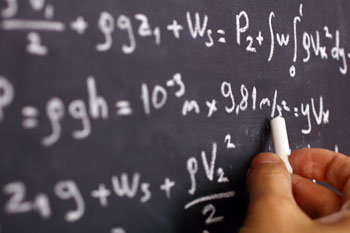 V₁/2 + ρgz₁ + Wₛ = P₂ + ∫w ∫₀¹ ρVₓ² dy
P = ρgh = 10⁻³ m × 9,81 m/s² = yVₓ
z₁ρg + Wₛ + ρV₂²/2